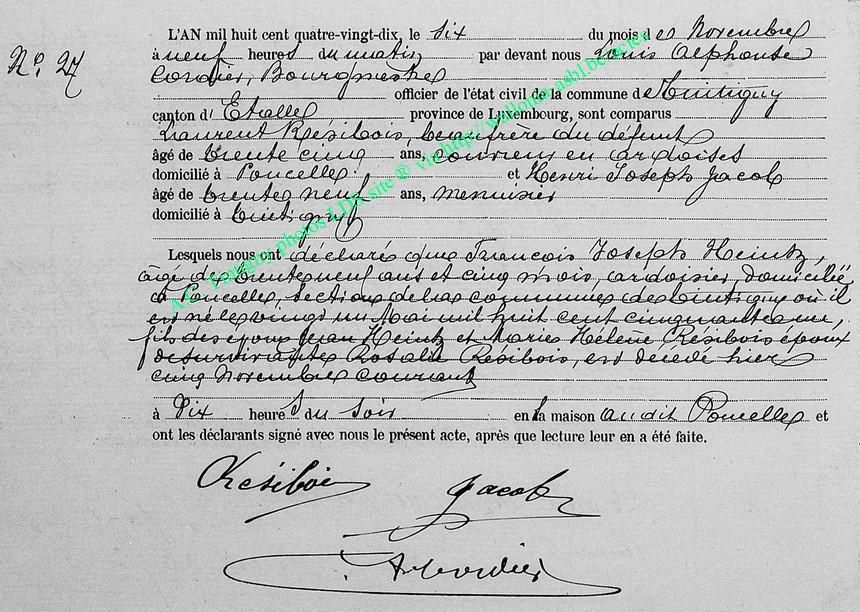 L'AN mil huit cent quatre-vingt-dix, le six du mois de Novembre
N° 27
à neuf heures du matin par devant nous Louis Alphonse
Cordier, Bourgmestre
officier de l'état civil de la commune de Tintigny
canton d'Etalle province de Luxembourg, sont comparus
Laurent Résibois, beaufrère du défunt
âgé de trente cinq ans, couvreur en ardoises
domicilié à Poncelle et Henri Joseph Jacob
âgé de trente neuf ans, menuisier
domicilié à Tintigny
Lesquels nous ont déclaré que François Joseph Heintz,
âgé de trente neuf ans et cinq mois, ardoisier, domicilié
à Poncelle, section de la commune de Tintigny où il
est né le vingt un Mai mil huit cent cinquante un,
fils des époux Jean Heintz et Marie Hélène Résibois époux
de survivante Rosalie Résibois, est décédé hier
cinq Novembre courant
à Dix heures du soir en la maison audit Poncelle et
ont les déclarants signé avec nous le présent acte, après que lecture leur en a été faite.
Résibois Jacob
A Cordier
A.C. Tintigny photos LDS site ® via http://wallonia.asbl.be